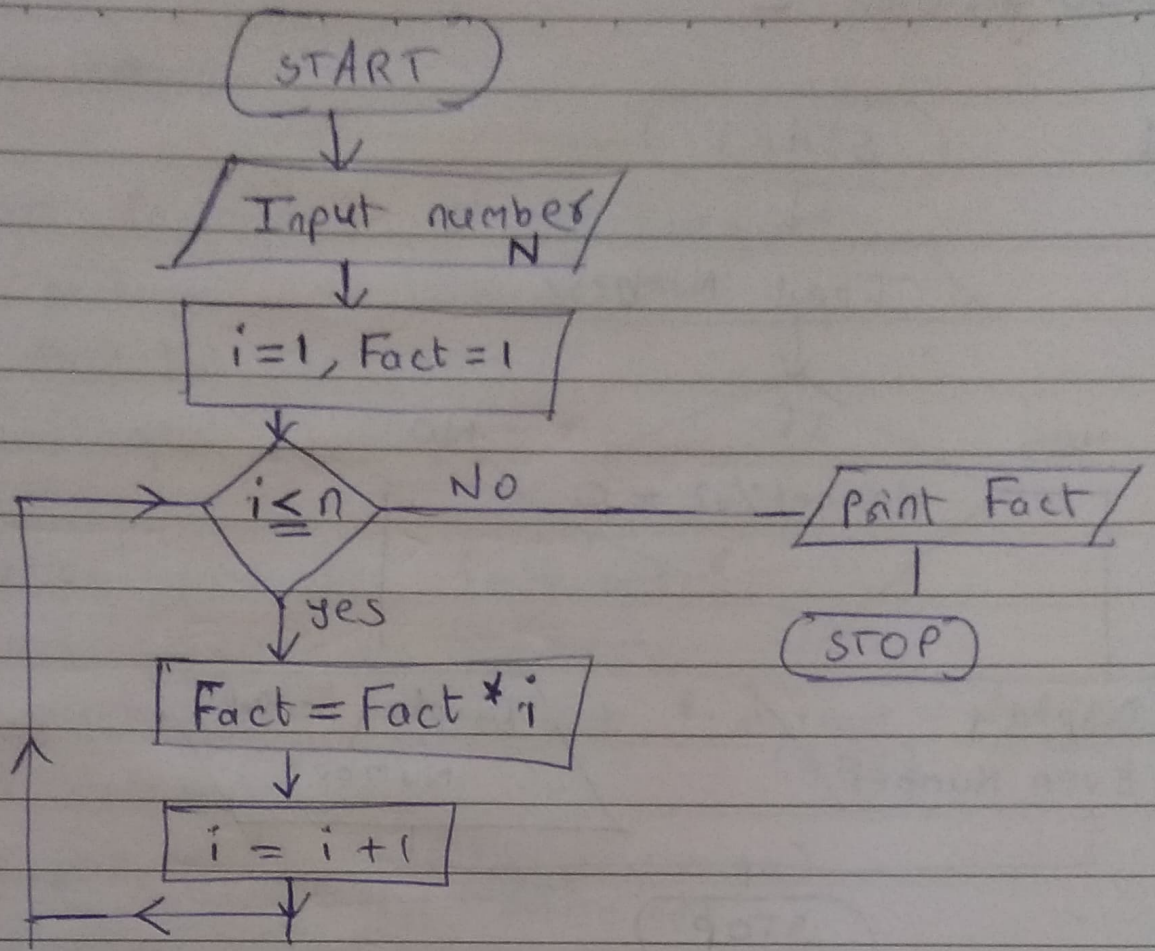 START
Input number
N
i=1, Fact = 1
i ≤ n
NO
Print Fact
yes
STOP
Fact = Fact * i
i = i + 1